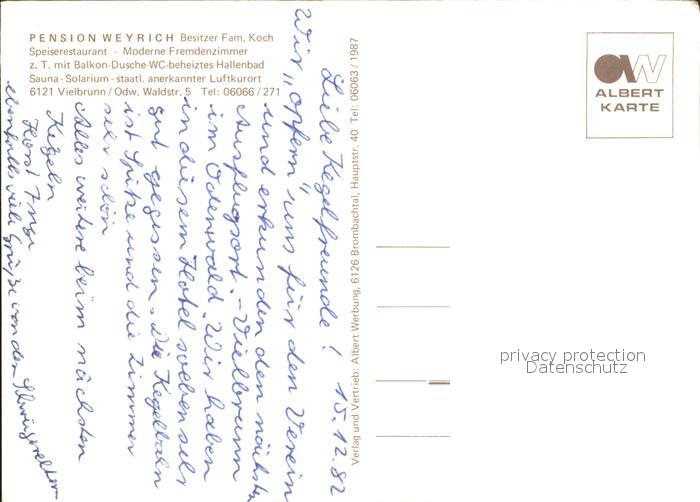 PENSION WEYRICH Besitzer Fam. Koch
Speiserestaurant - Moderne Fremdenzimmer
z. T. mit Balkon-Dusche-WC-beheiztes Hallenbad
Sauna - Solarium - staatl. anerkannter Luftkurort
6121 Vielbrunn / Odw. Waldstr. 5 Tel: 06066 / 271
15.12.82
Liebe Kegelfreunde!
Wir „opfern" uns für den Verein
und erkunden den nächsten
Ausflugsort. - Vielbrunn
im Odenwald. Wir haben
in diesem Hotel soeben sehr
gut gegessen. Die Kegelbahn
ist Spitze und die Zimmer
sehr schön
Alles weitere beim nächsten
Kegeln
Horst Inge
ebenfalls viele Grüße von den
Verlag und Vertrieb: Albert Werbung, 6126 Brombachtal, Hauptstr. 40 Tel: 06063 / 1987
AW
ALBERT
KARTE
privacy protection
Datenschutz